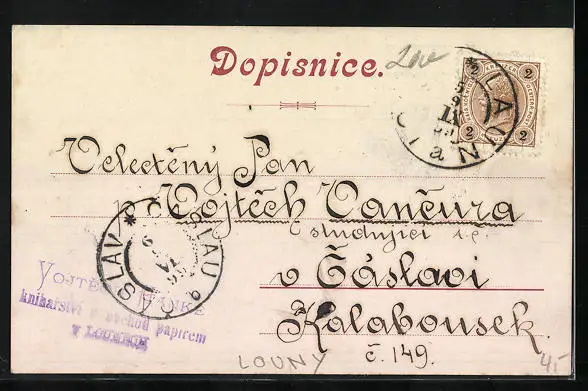 Dopisnice.
2 2
2 2
LAUN
Velectěný Pan
p. t. Vojtěch Vančura
studující t. č.
v Čáslavi
Kalabousek
č. 149.
ČASLAU
ČÁSLAV
VOJTĚCH
knihařství a obchod papírem
V LOUNECH
LOUNY